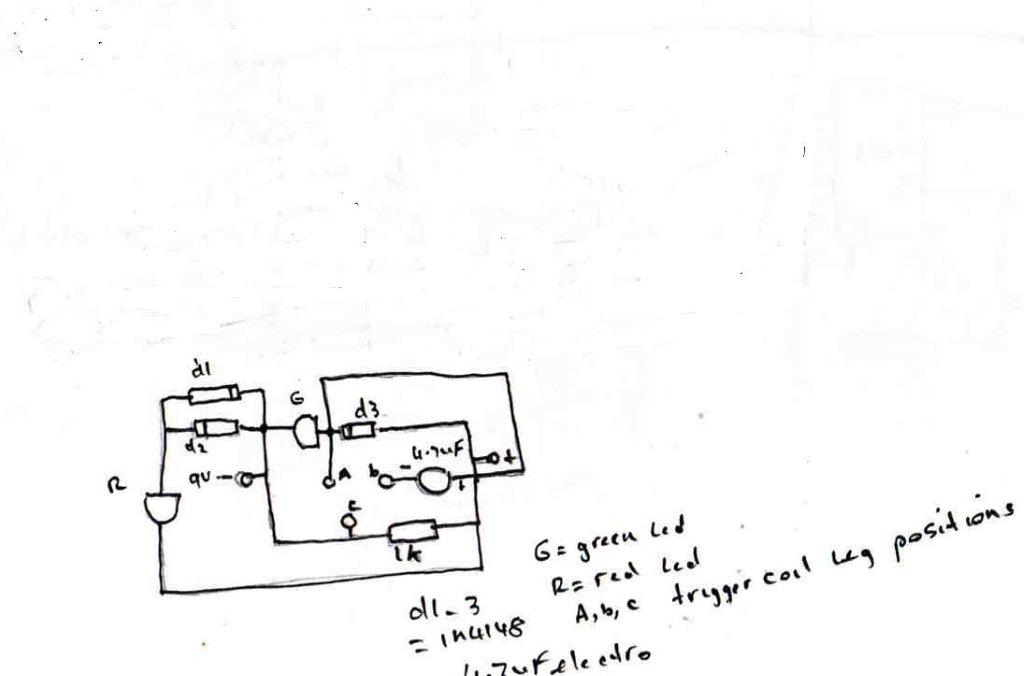 d1
G
d3
d2
4.7uF
9V -
A
b
-
+
+
R
c
1k
G = green led
R = red led
A, b, c trigger coil leg positions
d1-3
= 1N4148
4.7uF electro